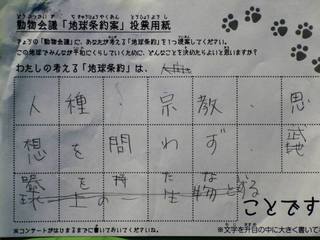 動物会議「地球条約案」投票用紙
きょうの「動物会議」に、あなたが考える「地球条約」を1つ提案してください。
この地球でみんなが平和にくらしていくために、どんなことを決めたらよいと思いますか?
わたしの考える「地球条約」は、
人種・宗教・思
想を問わず、
ことです
※コンサートがはじまるまでに書いておいてください。
※文字を升目の中に大きく書いて